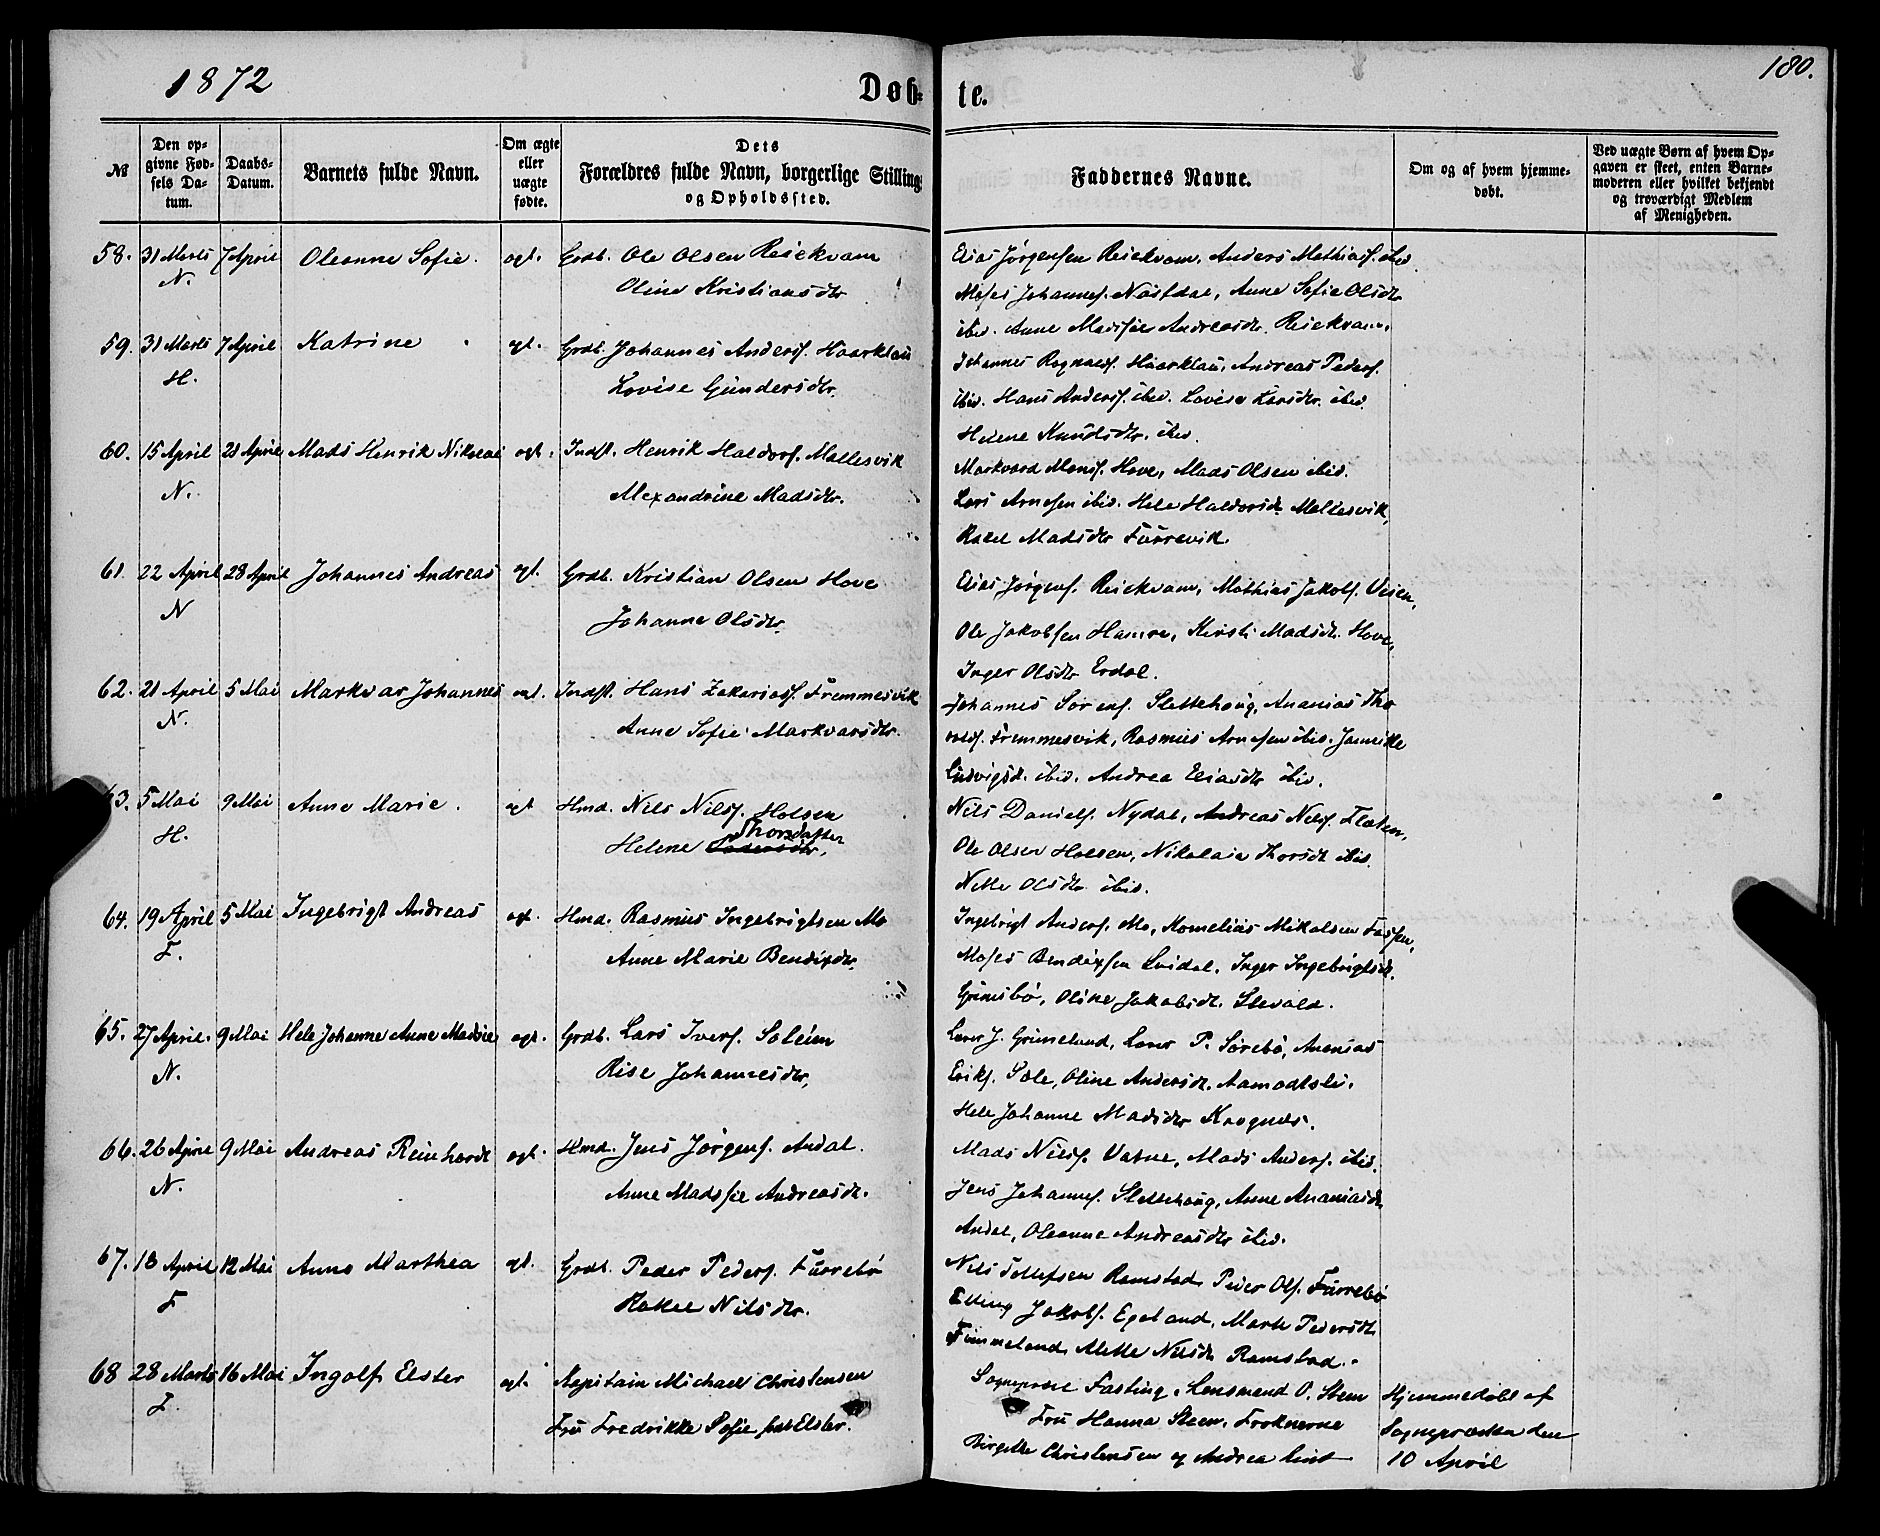 1872
Døb-
te.
180.
№
Den op-
givne Fød-
sels Da-
tum.
Daabs-
Datum.
Barnets fulde Navn.
Om ægte
eller
uægte
fødte.
Dets
Forældres fulde Navn, borgerlige Stilling
og Opholdssted.
Faddernes Navne.
Om og af hvem hjemme-
døbt.
Ved uægte Børn af hvem Op-
gaven er skeet, enten Barne-
moderen eller hvilket bekjendt
og troværdigt Medlem
af Menigheden.
58. 31 Marts 7 April Oleanne Sofie. egt. Grdb. Ole Olsen Reiekvam
N. Oline Kristiansdtr
Elias Jørgensen Reiekvam, Anders Mathiass. ibid
Moses Johanness. Nastdal, Anne Sofie Olsdtr
ibid. Anne Madsfie Andreasdtr. Reiekvam.
59. 31 Marts 7 April Katrine egt. Grdb. Johannes Anderss. Haarklau
H. Lovise Gundersdtr.
Johannes Ragnalds. Haarklau, Andreas Peders.
ibid. Hans Anderss. ibid. Lovise Larsdtr. ibid.
Helene Knudsdtr. ibid.
60. 15 April 21 April Mads Henrik Nikolai egt. Indst. Henrik Haldors. Mallesvik
N. Alexandrine Madsdtr.
Markvard Monss. Hove, Mads Olsen ibid.
Lars Arnesen ibid. Hele Haldorsdtr Mallesvik,
Rakel Madsdtr Furrevik.
61. 22 April 28 April Johannes Andreas egt. Grdb. Kristian Olsen Hove
N Johanne Olsdtr.
Elias Jørgens. Reiekvam, Mathias Jakobs. Veien,
Ole Jakobsen Hamre, Kirsti Madsdtr. Hove,
Inger Olsdtr Erdal.
62. 21 April 5 Mai Markvar Johannes egt. Indst. Hans Zakariass. Fremmesvik
N. Anne Sofie Markvarsdtr.
Johannes Sørens. Slettehaug, Ananias Tho
valds. Fremmesvik, Rasmus Arnesen ibid. Jannikke
Ludvigsd. ibid. Andrea Eliasdtr ibid.
63. 5 Mai 9 Mai Anne Marie. egt Hmd. Nils Nilss. Holsen
H. Helene Thorsdatter
Nils Daniels. Nydal, Andreas Nilss. Flaten,
Ole Olsen Holsen, Nikolaia Thorsdt ibid.
Nille Olsdtr ibid.
64. 19 April 5 Mai Ingebrigt Andreas egt. Hmd. Rasmus Ingebrigtsen Mo
F. Anne Marie Bendixdtr.
Ingebrigt Anders. Mo, Kornelius Mikalsen Fossen,
Moses Bendixsen Lvidal, Inger Ingebrigtsdt.
Grimsbø, Oline Jakobsdt.
65. 27 April. 9 Mai Hele Johanne Anne Madsie egt. Grdb. Lars Ivers. Soleim
N. Rise Johannesdtr,
Lasse J. Grimeland, Lasse P. Sørebø, Ananias
Eriks. Sæle, Oline Andersdt. Aamodtsli.
Hele Johanne Madsdtr Kvognæs.
66. 26 April 9 Mai Andreas Reinhardt egt. Hmd. Jens Jørgens. Andal.
N. Anne Madsfie Andreasdt.
Mads Nilss. Vatne, Mads Anders. ibid.
Jens Johanness. Slettehaug, Anne Ananiasdtr
Andal, Oleanne Andreasdtr ibid.
67. 18 April 12 Mai Anne Marthea egt. Grdb. Peder Peders. Furrebø
F Rakel Nilsdtr.
Nils Tollefsen Ramstad, Peder Ols. Furrebø
Elling Jakobs. Egeland, Marte Pedersdt
Fimmeland, Mette Nilsdt Ramstad.
68 28 Marts 16 Mai Ingolf Elster egt. Kapitain Michael Christensen
F. Fru Fredrikke Sofie født Elster.
Sognepræst Fasting, Lensmand O. Steen
Fru Hanna Steen, Frøknerne
Birgitte Christensen og Andrea Lind
Hjemmedøbt af
Sognepræsten den
10 April